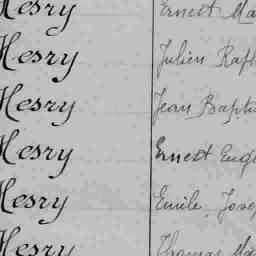 Henry Ernest Ma
Henry Julien Raph
Henry Jean Baptis
Henry Ernest Eugè
Henry Emile, Jose
Henry Thomas Ma